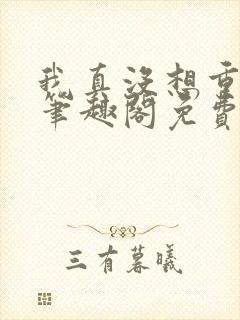 我真没想重
笔趣阁免费
三有暮曦